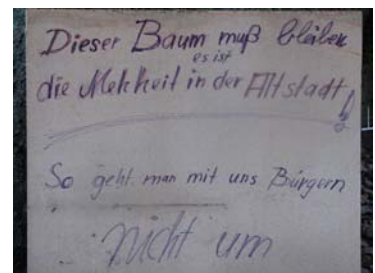 Dieser Baum muß bleiben
es ist
die Mehheit in der Altstadt!
So geht man mit uns Bürgern
nicht um